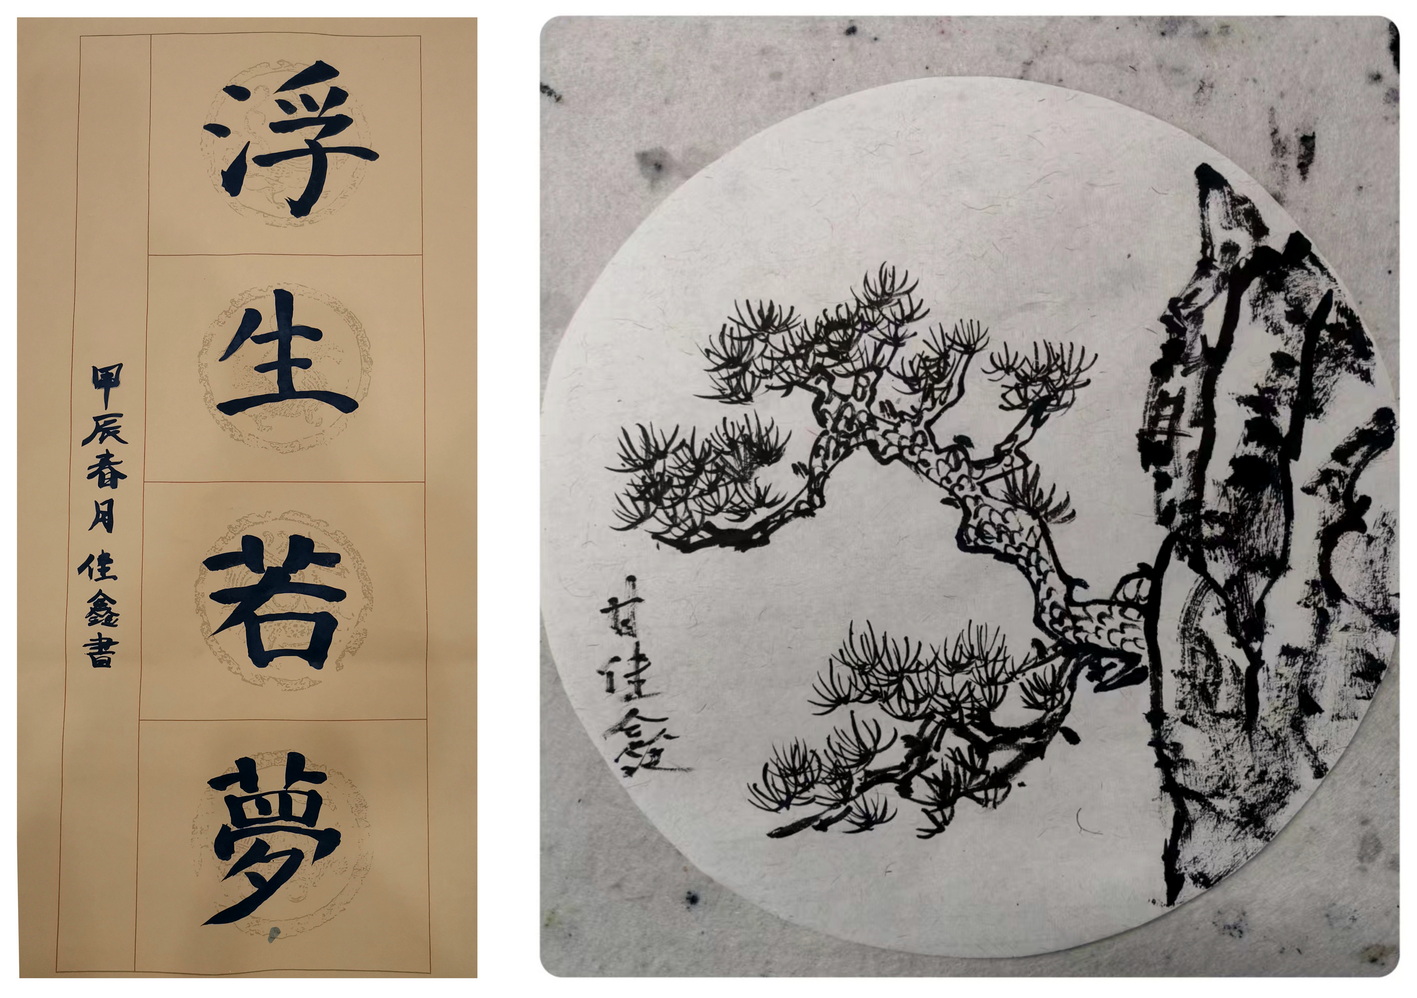 浮生若夢
甲辰春月佳鑫書
甘佳鑫